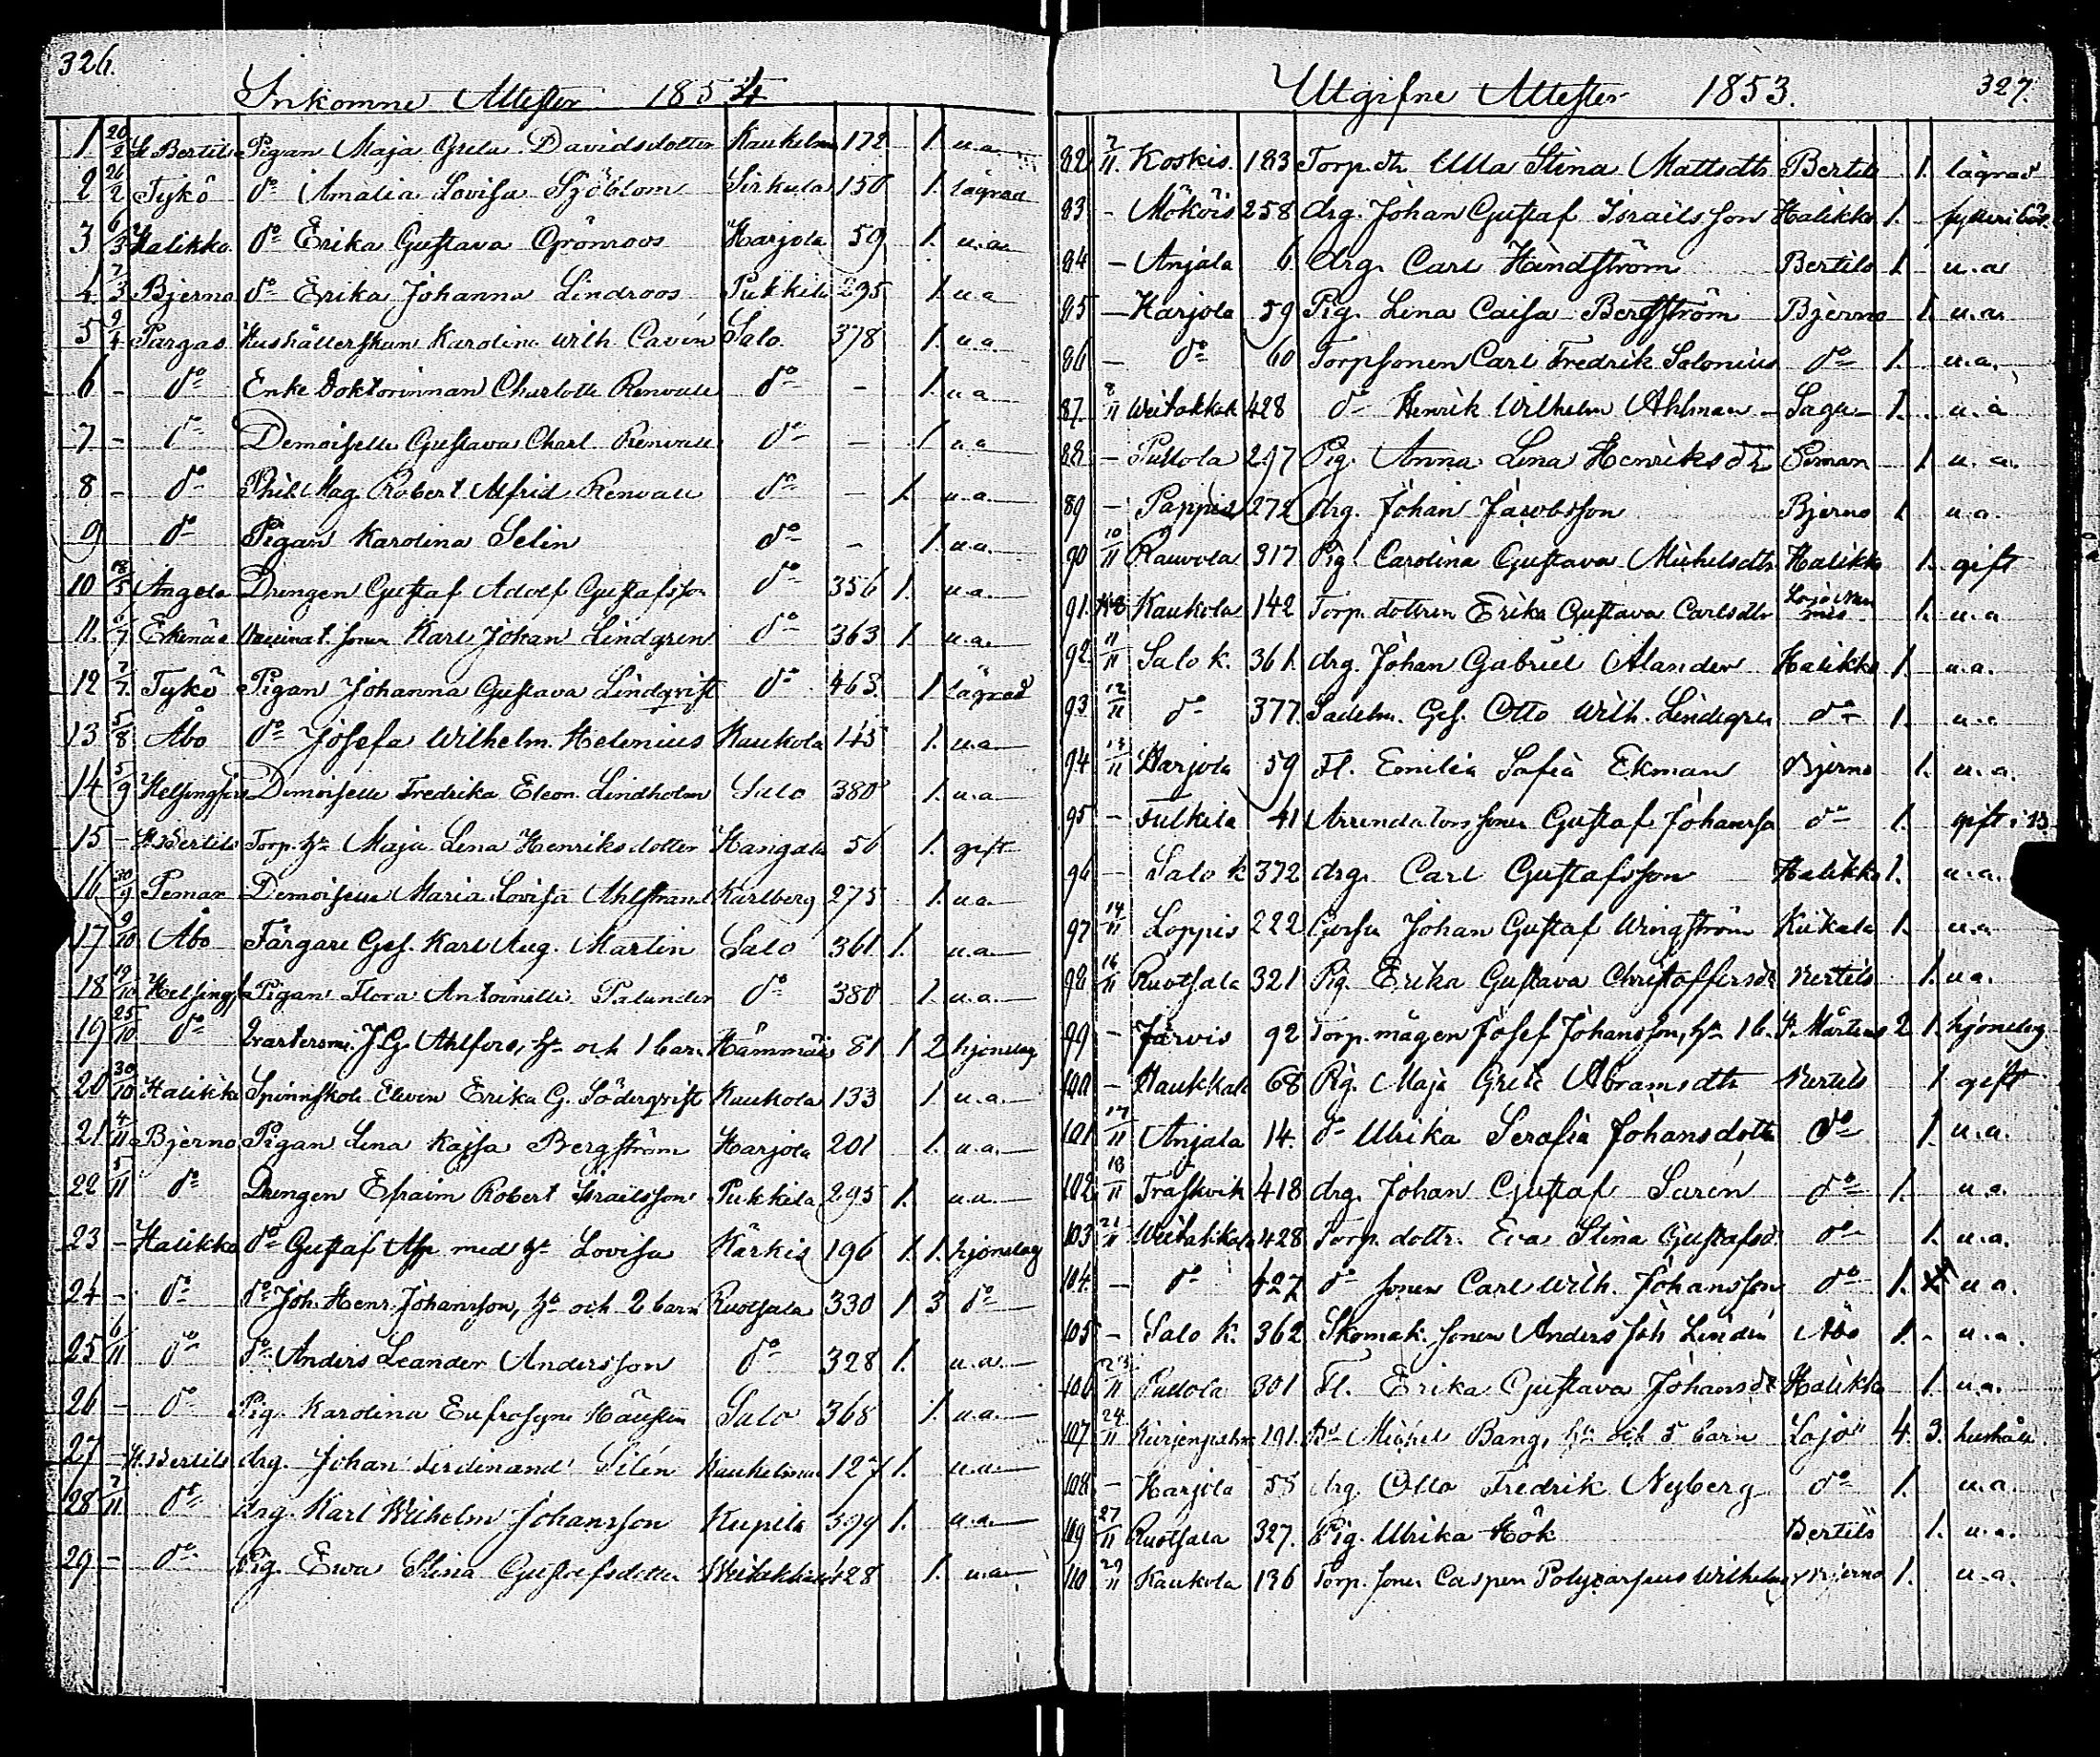 326.
Inkomne Attester 1854
1 20/2 St Bertils Pigan Maja Greta Davidsdotter Kaukelma 172 1. u.a.
2 26/2 Tykö do Amalia Lovisa Sjöblom Sirkula 150 1. lägrad
3 6/3 Halikko do Erika Gustava Grönroos Harjola 59 1. u.a.
4 7/3 Bjerno do Erika Johanna Lindroos Pukkila 295 1. u.a
5 9/4 Pargas Hushållerskan Karolina Wilh. Cavén Salo 378 1. u.a
6 - do Enke Doktorinnan Charlotte Renvall do - 1. u.a
7 - do Demoiselle Gustava Charl. Renvall do - 1. u.a
8 - do Phil. Mag. Robert Alfrid Renvall do - 1. u.a.
9 do Pigan Karolina Selin do - 1. u.a.
10 18/5 Angela Drengen Gustaf Adolf Gustafsson do 356 1. u.a.
11. 6/7 Ekenäs sonen Karl Johan Lindgren do 363 1. u.a.
12 7/7. Tykö Pigan Johanna Gustava Lindqvist do 463. 1. lägrad
13 5/8 Åbo do Josefa Wilhelm. Helenius Kaukola 145 1. u.a.
14 5/9 Helsingfors Demoiselle Fredrika Eleon. Lindholm Salo 380 1. u.a
15 - St Bertils Torp. h. Maja Lena Henriksdotter Hangala 56 1. gift
16 30/9 Pemar Demoiselle Maria Lovisa Ahlstrand Karlberg 275 1. u.a.
17 9/10 Åbo Färgare Ges. Karl Aug. Martin Salo 361 1. u.a.
18 19/10 Helsingf. Pigan Flora Antoinette Palander do 380 1. u.a.
19 25/10 do J. G. Ahlfors, h. och 1 barn 81 1 2 hjonelag
20 30/10 Halikko Spinnskole Eleven Erika G. Söderqvist Kaukola 133 1. u.a.
21. 4/11 Bjerno Pigan Lena Kajsa Bergström Harjola 201 1. u.a.
22 5/11 do Drengen Efraim Robert Israilsson Pukkila 295 1. u.a.
23 - Halikko do Gustaf Asp med h. Lovisa Kärkis 196 1. 1. hjonelag
24 - do do Joh. Henr. Johansson, h. och 2 barn Ruotsala 330 1 3 do
25 6/11 do do Anders Leander Andersson do 328 1. u.a.
26 - do Pig. Karolina Eufrosyne Salo 368 1. u.a.
27 - St. Bertils drg. Johan Ferdinand Silén Kaukelma 127 1. u.a.
28 7/11 do drg. Karl Wilhelm Johansson Kupila 399 1. u.a.
29 - do Pig. Ewa Stina Gustafsdotter Weitakkala 428 1. u.a.
Utgifne Attester 1853. 327.
82 7/11. Koskis. 183 Torp. dtr Ulla Stina Mattsdtr Bertils 1. lägrad
83 - Mököis 258 drg. Johan Gustaf Israilsson Halikko 1.
84 - Anjala 6 drg. Carl Hindström Bertils 1. u.a
85 - Harjola 59 Pig. Lena Caisa Bergström Bjerno 1. u.a.
86 - do 60 Torpsonen Carl Fredrik Solonius do 1. u.a.
87. 8/11 Weitakkala 428 do Henrik Wilhelm Ahlman Sagu 1. u.a
88 - Pullola 297 Pig. Anna Lena Henriksdr Pemar 1. u.a.
89 - Pappila 272 drg. Johan Jacobsson Bjerno 1 u.a.
90 10/11 Rauvola 317 Pig. Carolina Gustava Michelsdtr Halikko 1. gift
91. Kaukola 142 Torp. dottren Erika Gustava Carlsdtr 1. u.a
92 11/11 Salo k. 361. drg. Johan Gabriel Alander Halikko 1. u.a.
93 12/11 do 377. Sadelm. Ges. Otto Wilh. Lindegren do 1. u.a
94 13/11 Harjola 59 Fl. Emilia Sofia Ekman Bjerno 1. u.a.
95 - Fulkila 41 Arrendators sonen Gustaf Johansso do 1. gift
96 - Salo k 372 drg. Carl Gustafsson Halikko 1. u.a.
97 14/11 Loppis 222 Gossen Johan Gustaf Wingström Kiikala 1. u.a
98 16/11 Ruotsala 321 Pig. Erika Gustava Christoffersdr Bertils 1. u.a.
99 - Järvis 92 Torp. mågen Josef Johansson, h. 1 b. St. Mårtens 2 1. hjonelag
100 - Haukkala 68 Pig. Maja Greta Abramsdtr Bertils 1 gift
101 17/11 Anjala 14. do Ulrika Serafia Johansdotter do 1. u.a.
102 18/11 Traskvik 418 drg. Johan Gustaf Saren do 1. u.a.
103 21/11 Weitakkala 428 Torp. dottr. Eva Stina Gustafsd. do 1. u.a.
104 - do 427 do sonen Carl Wilh. Johansson do 1. u.a.
105 - Salo k. 362 Skomak. sonen Anders Joh Lindén Åbo 1 - u.a.
106 23/11 Pullola 301 Fl. Erika Gustava Johansdr Halikko 1. u.a.
107 24/11 191. Michel Bang, h. och 5 barn Lojo 4. 3. hushåll
108 - Harjola 58 drg. Otto Fredrik Nyberg do 1. u.a.
109 27/11 Ruotsala 327. Pig. Ulrika Hök Bertils 1. u.a.
110 29/11 Kaukola 136 Torp. sonen Casper Polycarpus Wilhelms Bjerno 1. u.a.